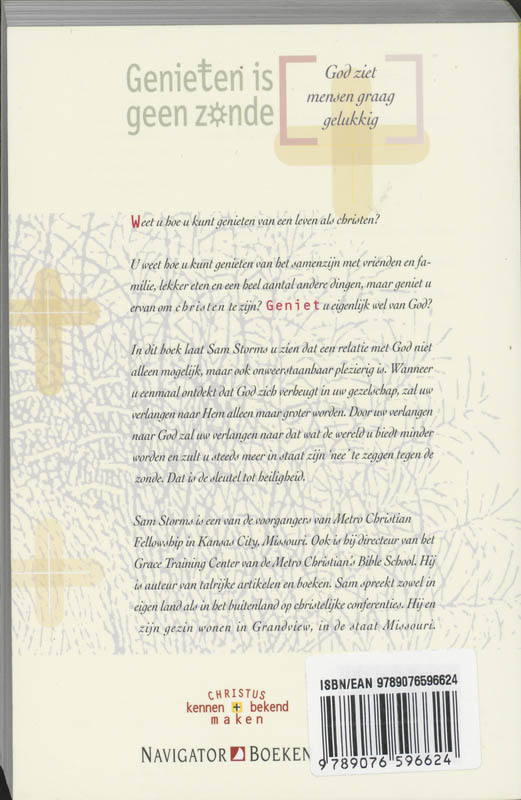 Genieten is
geen zonde
God ziet
mensen graag
gelukkig
Weet u hoe u kunt genieten van een leven als christen?
U weet hoe u kunt genieten van het samenzijn met vrienden en fa-
milie, lekker eten en een heel aantal andere dingen, maar geniet u
ervan om christen te zijn? Geniet u eigenlijk wel van God?
In dit boek laat Sam Storms u zien dat een relatie met God niet
alleen mogelijk, maar ook onweerstaanbaar plezierig is. Wanneer
u eenmaal ontdekt dat God zich verheugt in uw gezelschap, zal uw
verlangen naar Hem alleen maar groter worden. Door uw verlangen
naar God zal uw verlangen naar dat wat de wereld u biedt minder
worden en zult u steeds meer in staat zijn 'nee' te zeggen tegen de
zonde. Dat is de sleutel tot heiligheid.
Sam Storms is een van de voorgangers van Metro Christian
Fellowship in Kansas City, Missouri. Ook is hij directeur van het
Grace Training Center van de Metro Christian's Bible School. Hij
is auteur van talrijke artikelen en boeken. Sam spreekt zowel in
eigen land als in het buitenland op christelijke conferenties. Hij en
zijn gezin wonen in Grandview, in de staat Missouri.
CHRISTUS
kennen + bekend
maken
NAVIGATOR BOEKEN
ISBN/EAN 9789076596624
9 789076 596624